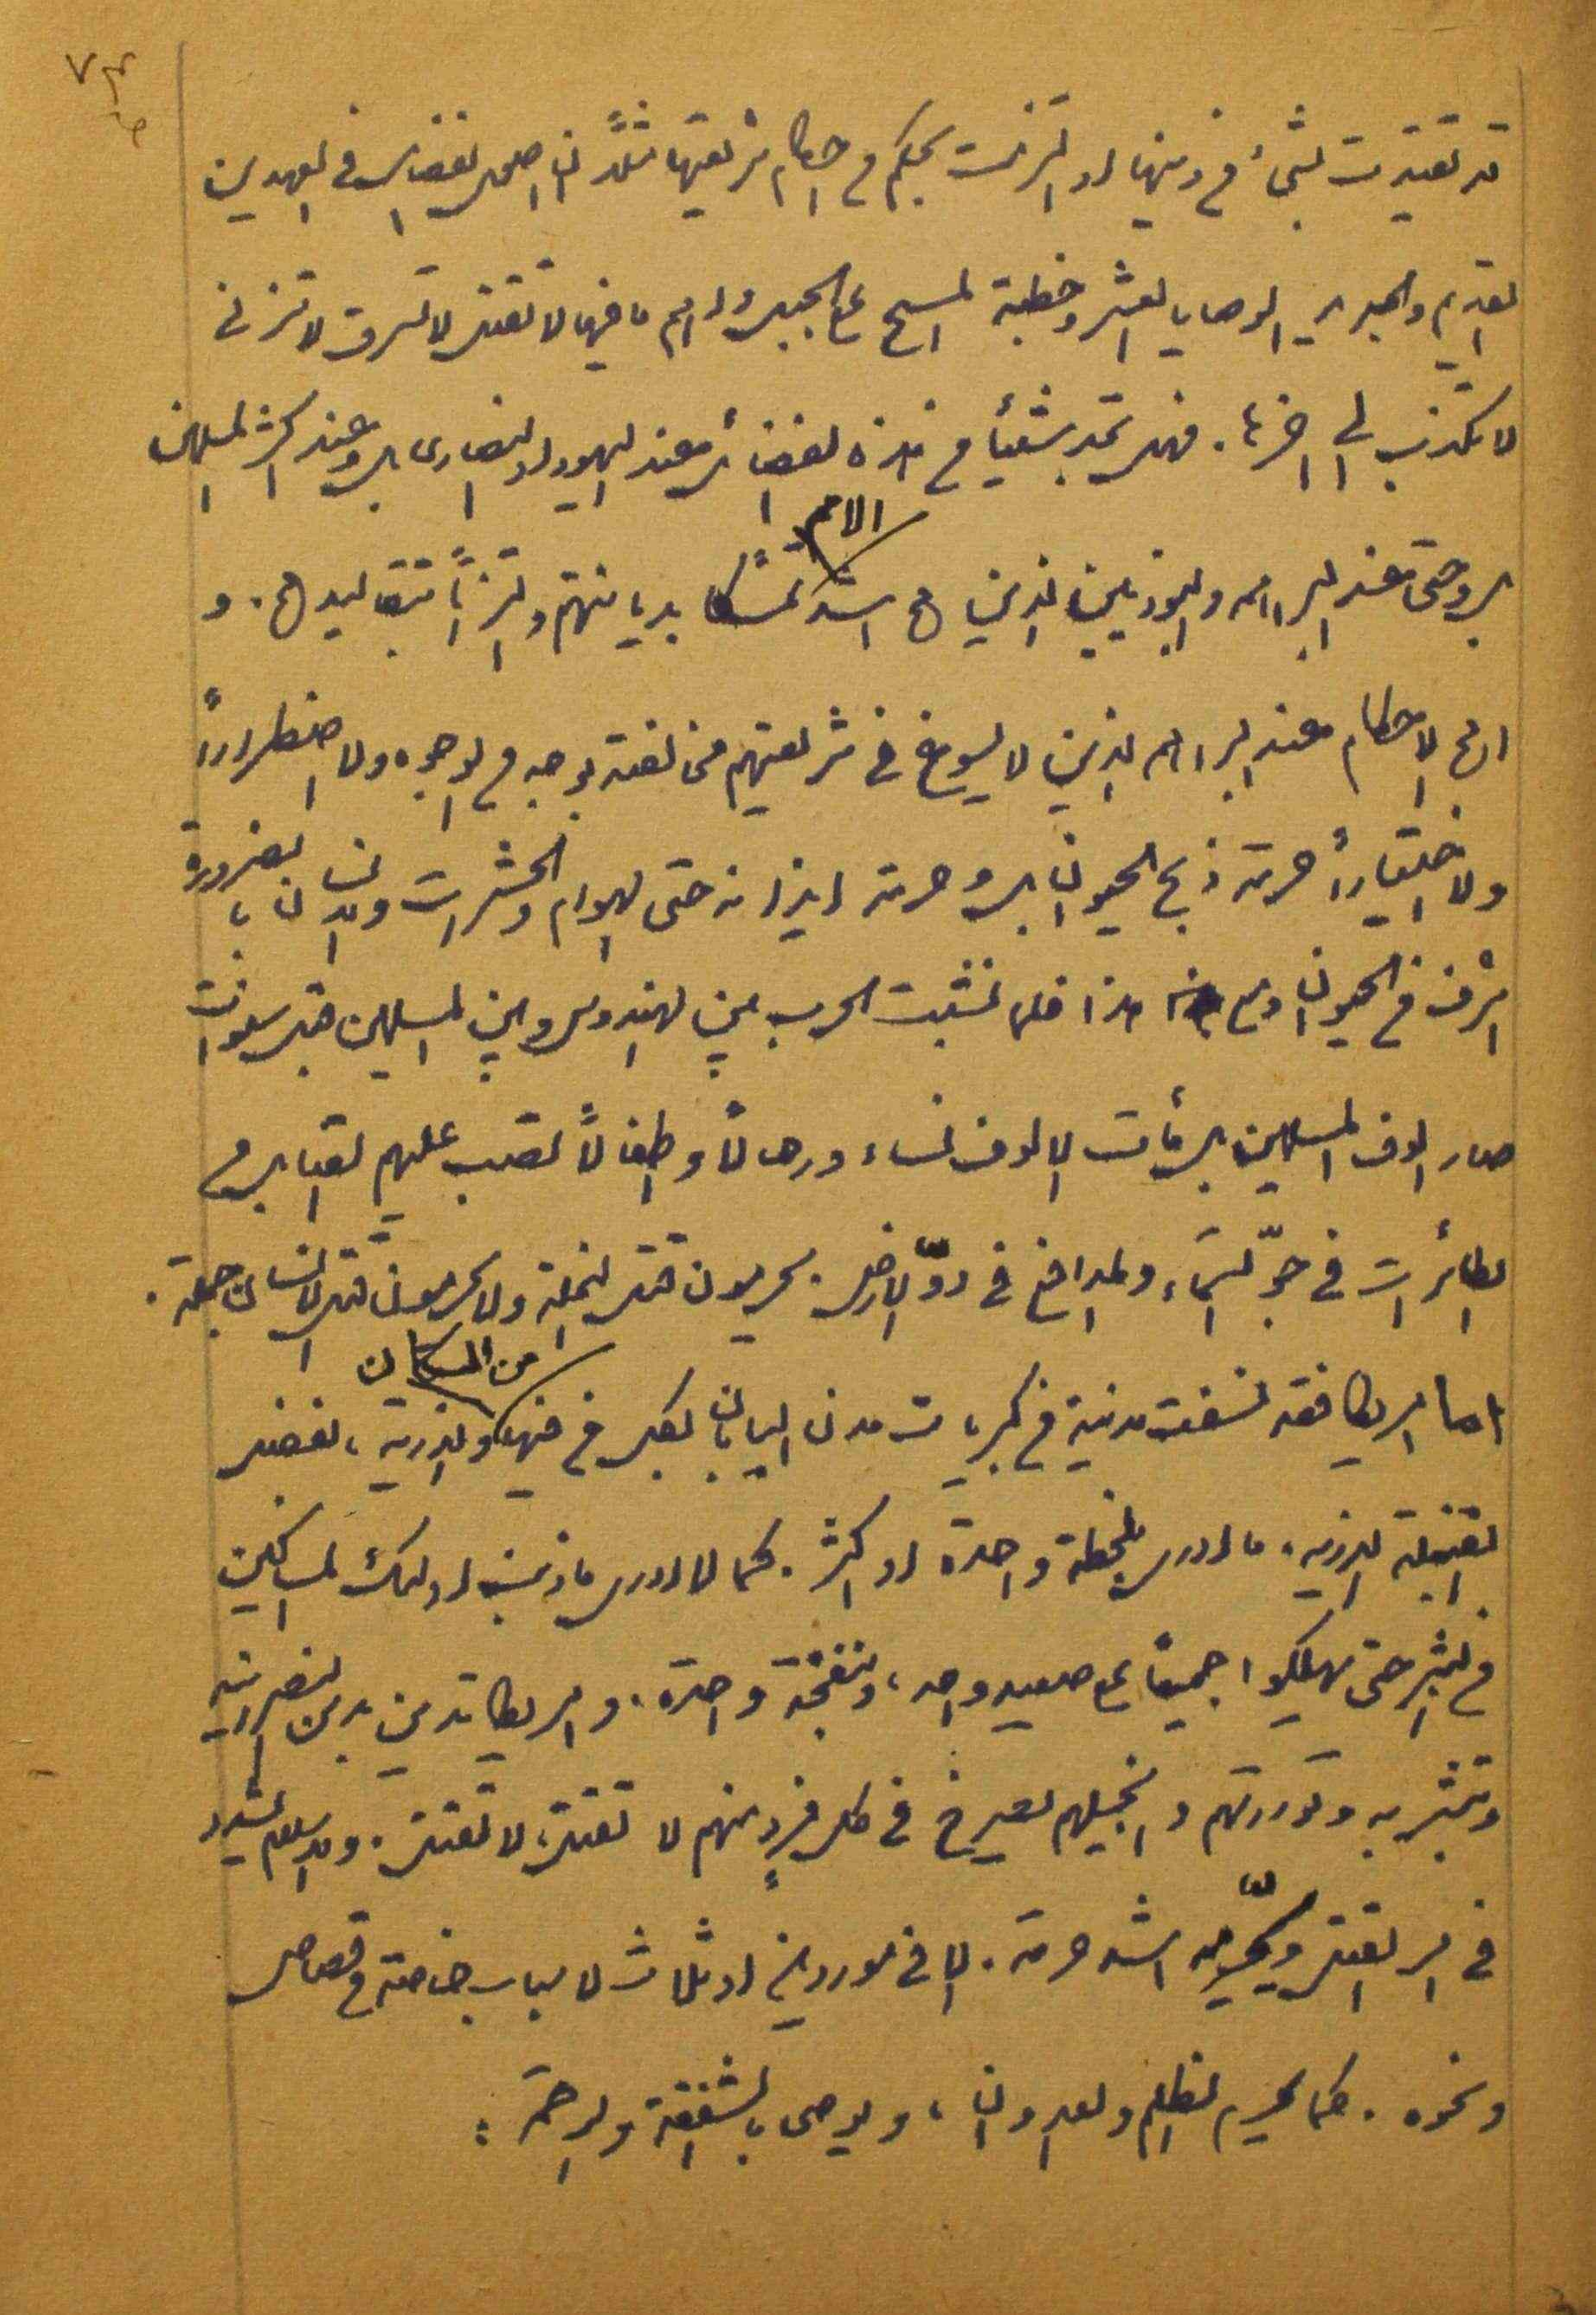 قد تقيدت بشئ من دينها او التزمت بحكم من احكام شريعتها مثلاً ان اصول الفضائل في العهدين
القديم والجديد الوصايا العشر وخطبة المسيح على الجبل واهم ما فيها لا تقتل لا تسرق لا تزني
لا تكذب الى اخرها . فهل تجد شيئاً من هذه الفضائل عند اليهود او النصارى بل وعند اكثر المسلمين
بل وحتى عند البراهمه والبوذيين الذين هم اشد الامم تمسكا بديانتهم والتزاماً بتقاليدهم . و
اهم الاحكام عند البراهمه الذين لا يسوغ في شريعتهم مخالفته بوجه من الوجوه ولا اضطراراً
ولا اختياراً حرمة ذبح الحيوان بل وحرمة ايذائه حتى الهوام والحشرات والانسان بالضرورة
اشرف من الحيوان ومع هذا فلما نشبت الحرب بين الهندوس وبين المسلمين قبل سنوات
صار الوف المسلمين بل مأت الالوف نساء ورجالاً واطفالاً تصب عليهم القنابل من
الطائرات في جوّ السماء والمدافع في دوّ الارض . يحرمون قتل النملة ولا يحرمون قتل الانسان جملة .
اما امريكا فقد نسفت مدينة من كبريات مدن اليابان بكل من فيها من السكان والذريه ، بفضل
القنبلة الذريه . ما ادري بلحظة واحدة او اكثر . كما لا ادري ما ذنب اولئك المساكين
من البشر حتى يهلكوا جميعاً على صعيد واحد ، وبنفخة واحدة . وامريكا تدين بدين النصرانيه
وتبشر به وتوراتهم وانجيلهم يصرخ في كل فردٍ منهم لا تقتل ، لا تقتل . والاسلام يشدد
في امر القتل ويحرّمه اشد حرمة . الا في موردين او ثلاث لاسباب خاصة من قصاص
ونحوه . كما يحرم الظلم والعدوان ، ويوصي بالشفقة والرحمة :